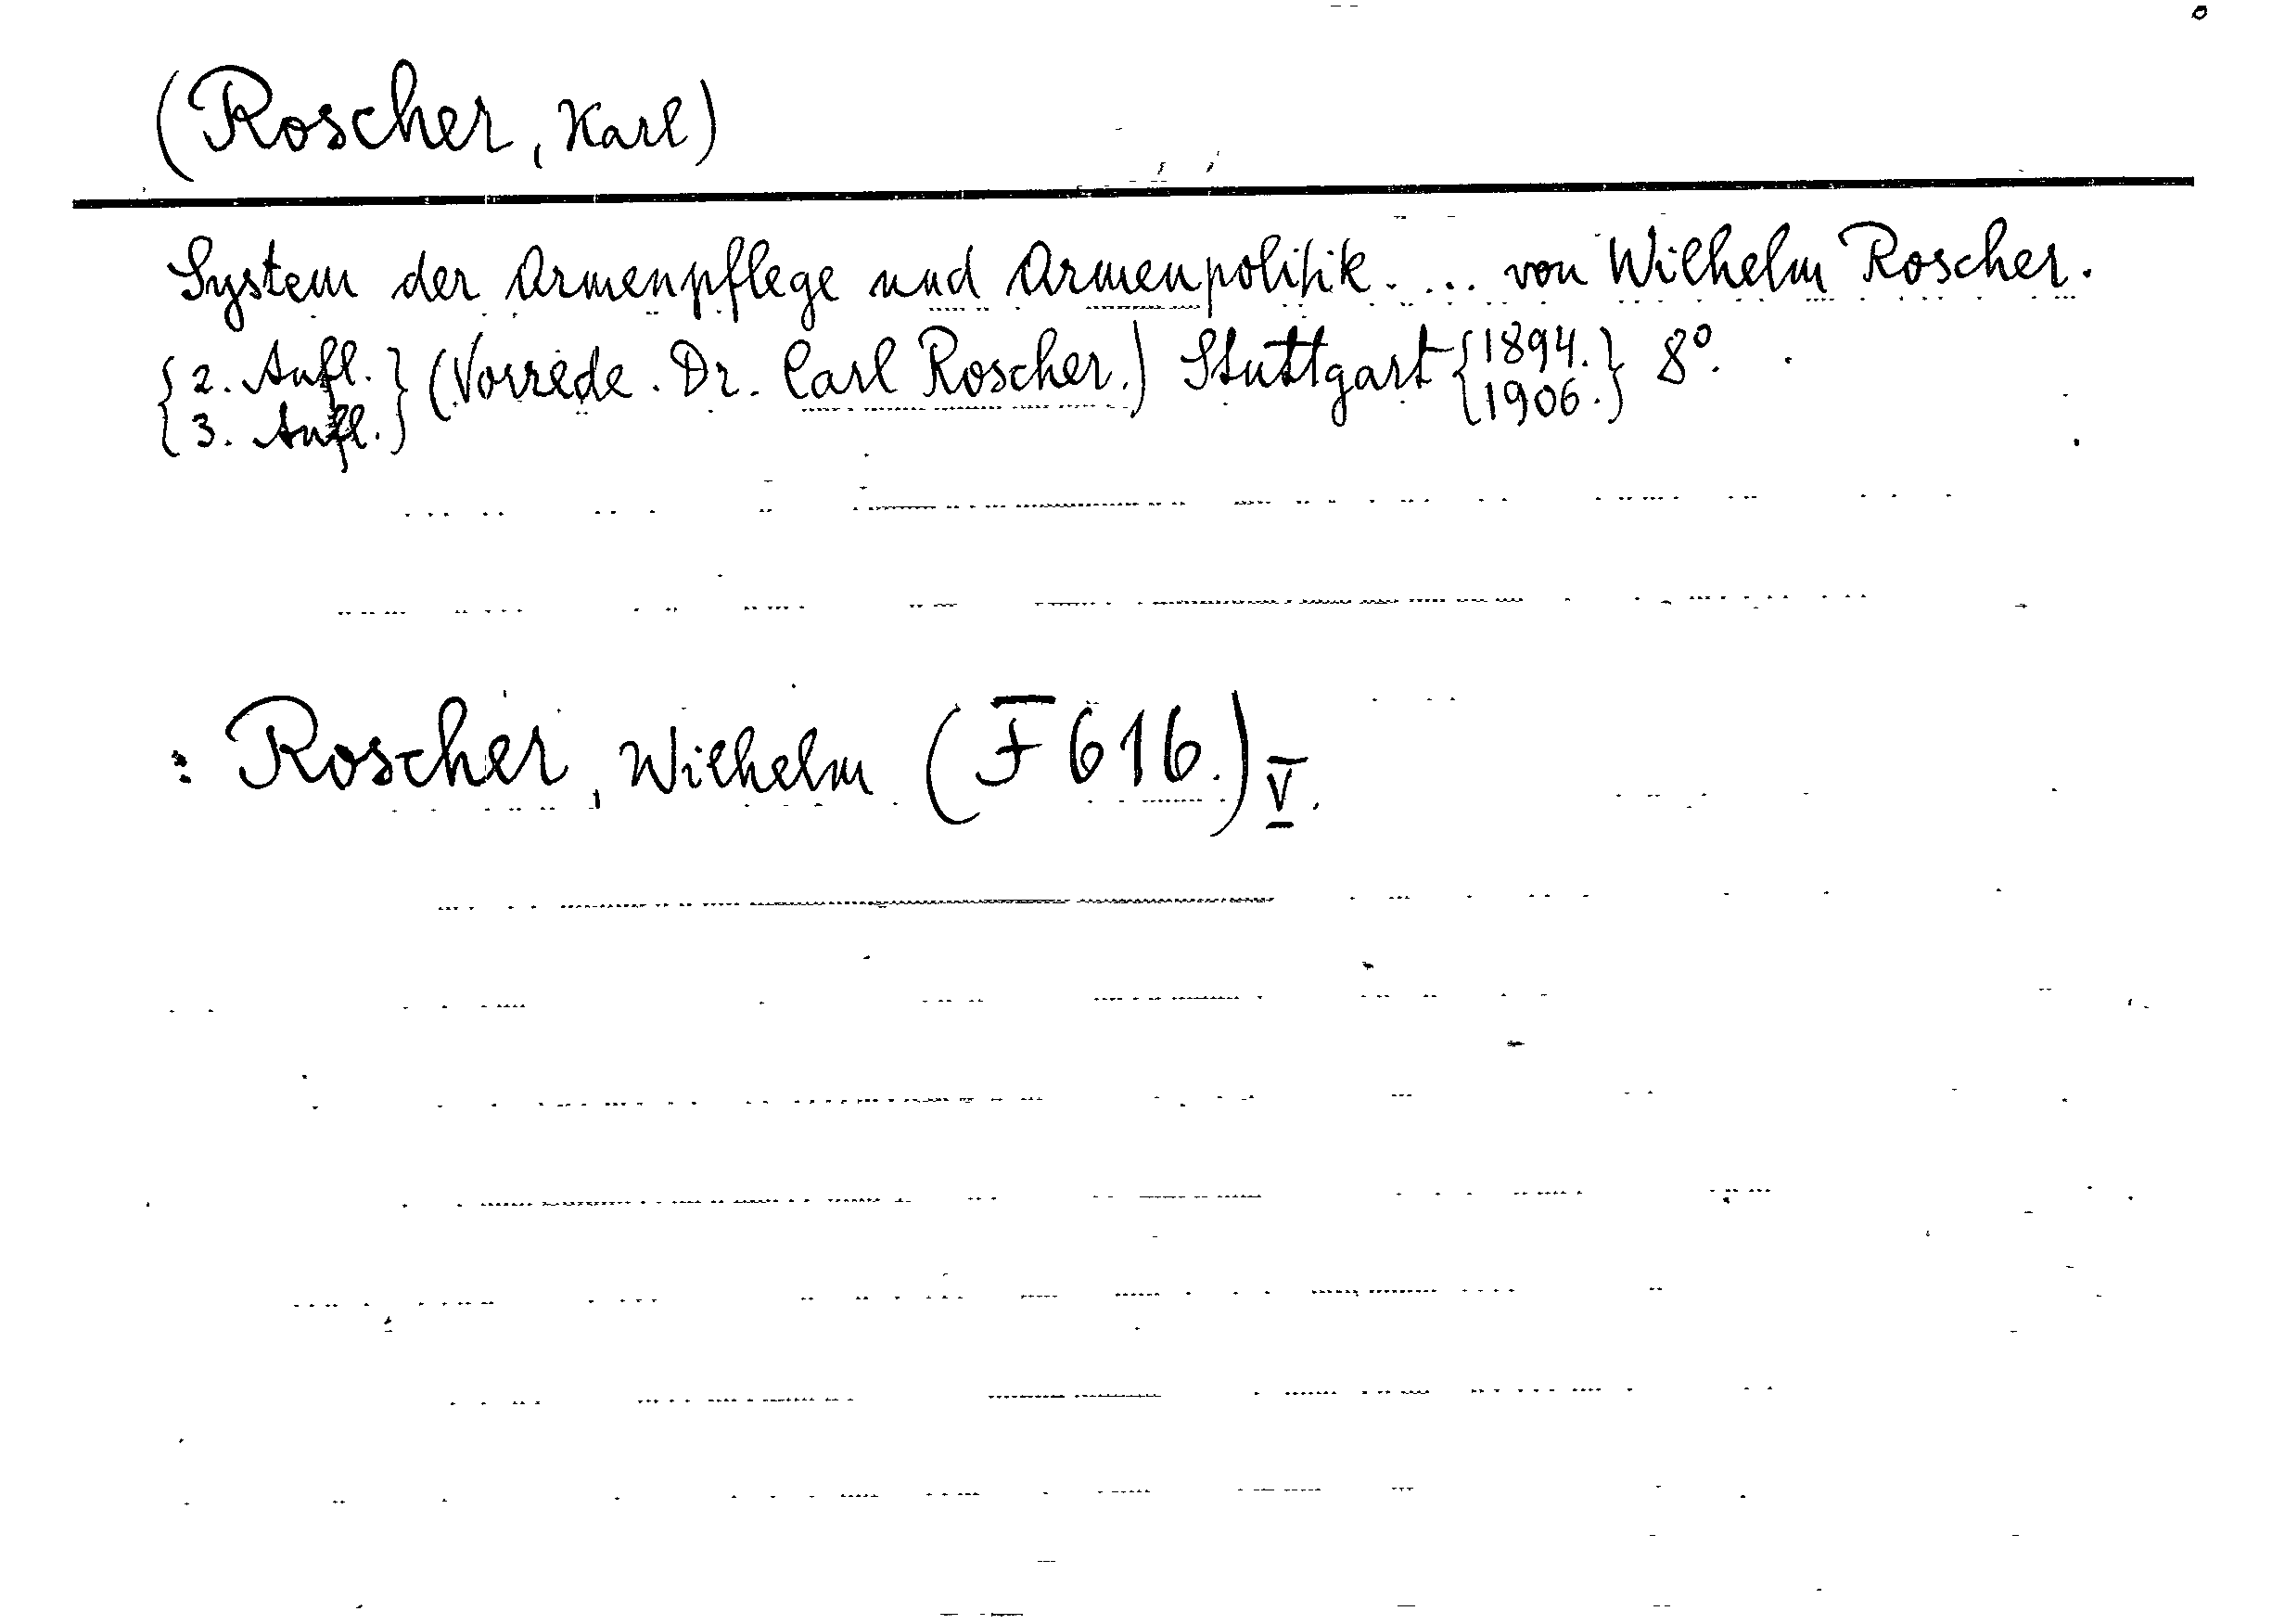 (Roscher, Karl)
System der Armenpflege und Armenpolitik. ... von Wilhelm Roscher.
{2. Aufl.} (Vorrede. Dr. Carl Roscher.) Stuttgart {1894.} 8°.
{3. Aufl.} {1906.}
: Roscher, Wilhelm (F 616.) V.